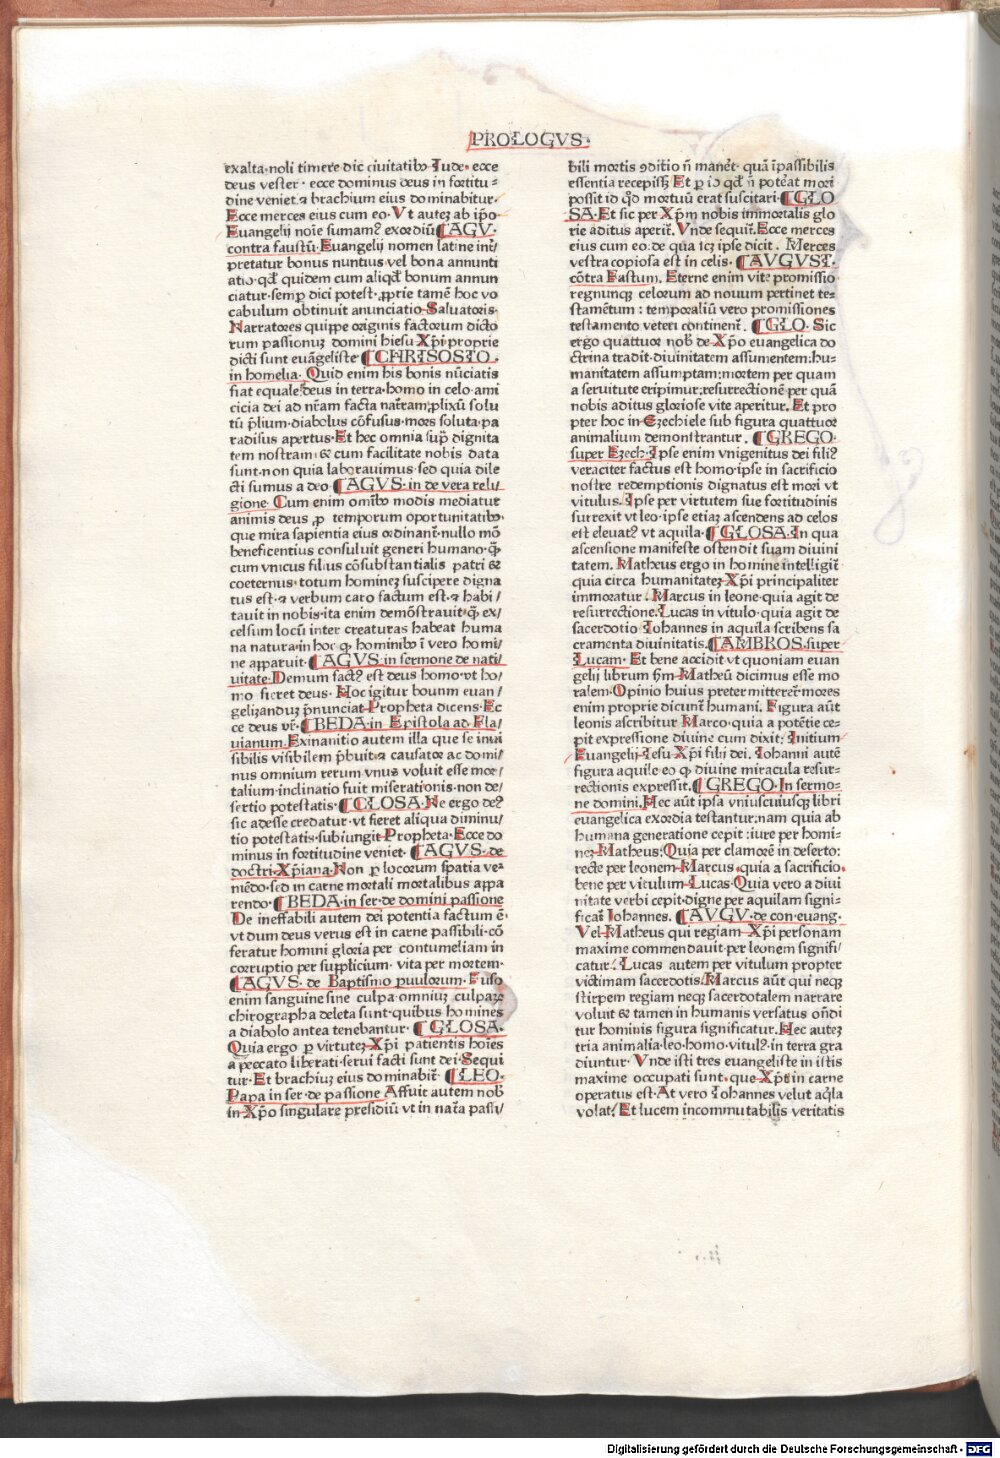 PROLOGVS·
exalta·noli timere·dic ciuitatibꝰ Jude·ecce
deus vester·ecce dominus deus in fortitu⸗
dine veniet·⁊ brachium eius dominabitur·
Ecce merces eius cum eo·Vt auteȝ ab ip̄o·
Euangelij noīe sumamꝰ exordiū¶AGV·
contra faustū·Euangelij nomen latine int̄/
pretatur bonus nuntius·vel bona annunti
atio·qd̄ quidem cum aliqd̄ bonum annun
ciatur·semꝑ dici potest·ꝓprie tamē hoc vo
cabulum obtinuit anunciatio·Saluatoris·
Narratores quippe originis factorum dicto
rum passionuȝ domini hiesu·Xp̄i proprie
dicti sunt euāgeliste·¶CHRISOSTO·
in homelia·Quid enim his bonis nūciatis
fiat equale·deus in terra·homo in celo·ami
cicia dei ad nr̄am facta nat̄ram;plixū solu
tū p̄lium·diabolus cōfusus·mors soluta·pa
radisus apertus·Et hec omnia sup̄ dignita
tem nostram·& cum facilitate nobis data
sunt·non quia laborauimus·sed quia dile
cti sumus a deo·¶AGVS·in de vera relu/
gione·Cum enim omībꝰ modis mediatur
animis deus ꝑ temporum oportunitatibꝰ·
que mira sapientia eius ordinant̄·nullo mō
beneficentius consuluit generi humano·q̄
cum vnicus filius cōsubstantialis patri &
coeternus·totum homineȝ suscipere digna
tus est·⁊ verbum caro factum est·⁊ habi/
tauit in nobis·ita enim demōstrauit·q̄ ex/
celsum locū inter creaturas habeat huma
na natura·in hoc ꝙ hominibꝰ ī vero homi/
ne apparuit·¶AGVS·in sermone de nati/
uitate·Demum factꝰ est deus homo·vt ho/
mo fieret deus·Hoc igitur bounm euan/
gelizanduȝ p̄nunciat·Propheta dicens·Ec
ce deus vr̄·¶BEDA·in Epistola ad Fla/
uianum·Exinanitio autem illa que se inui
sibilis visibilem p̄buit·⁊ causator ac domi/
nus omnium rerum vnus voluit esse mor/
talium·inclinatio fuit miserationis·non de/
fertio potestatis·¶GLOSA·Ne ergo deꝰ
sic adesse credatur·vt fieret aliqua diminu/
tio potestatis·subiungit·Propheta·Ecce do
minus in fortitudine veniet·¶AGVS·de
doctri·Xp̄iana·Non ꝑ locorum spatia ve⸗
niēdo·sed in carne mortali mortalibus appa
rendo·¶BEDA·in ser·de domini passione
De ineffabili autem dei potentia factum ē·
vt dum deus verus est in carne passibili·cō
feratur homini gloria per contumeliam in
corruptio per supplicium·vita per mortem·
¶AGVS·de Baptismo ꝑuulorum·Fuso
enim sanguine sine culpa·omniuȝ culpaꝝ
chirographa deleta sunt·quibus homines
a diabolo antea tenebantur·¶GLOSA·
Quia ergo ꝑ virtuteȝ·Xp̄i patientis hoīes
a peccato liberati·serui facti sunt dei·Sequi
tur·Et brachiuȝ eius dominabit̄·¶LEO·
Papa in ser·de passione Affuit autem nob̄
in·Xp̄o singulare presidiū vt in nat̄a passi/
bili mortis ꝯditio n̄ manet̄·quā īpassibilis
essentia recepiss̄ Et ꝑ id qd̄ n̄ pot̄at mori
possit id qd̄ mortuū erat suscitari·¶GLO
SA·Et sic per Xp̄m nobis immortalis glo
rie aditus aperit̄.Vnde sequit̄.Ecce merces
eius cum eo·de qua icȝ ipse dicit . Merces
vestra copiosa est in celis·¶AVGVST·
cōtra Fastum. Eterne enim vite promissio
regnunqȝ celorum ad nouum pertinet te⸗
stamētum : temporaliū vero promissiones
testamento veteri continent̄. ¶GLO. Sic
ergo quattuor nob̄ de·Xp̄o euangelica do
ctrina tradit·diuinitatem assumentem:hu⸗
manitatem assumptam:mortem per quam
a seruitute eripimur:resurrectionē per quā
nobis aditus gloriose vite aperitur. Et pro
pter hoc in·Ezechiele sub figura quattuor
animalium demonstrantur . ¶GREGO·
super Ezech·Ipse enim vnigenitus dei filiꝰ
veraciter factus est homo·ipse in sacrificio
nostre redemptionis dignatus est mori vt
vitulus.Ipse per virtutem sue fortitudinis
surrexit vt leo·ipse etiaȝ ascendens ad celos
est eleuatꝰ vt aquila·¶GLOSA·In qua
ascensione manifeste ostendit suam diuini
tatem. Matheus ergo in homine intelligit̄
quia circa humanitateȝ·Xp̄i principaliter
immoratur. Marcus in leone·quia agit de
resurrectione.Lucas in vitulo·quia agit de
sacerdotio Johannes in aquila scribens sa
cramenta diuinitatis.¶AMBROS.super
Lucam· Et bene accidit vt quoniam euan
gelij librum s̄m·Matheū dicimus esse mo
ralem·Opinio huius preter mitterer̄·mores
enim proprie dicunt̄ humani. Figura aūt
leonis ascribitur Marco·quia a potētie ce⸗
pit expressione diuine cum dixit: Initium
Euangelij·Jesu·Xp̄i filij dei. Johanni autē
figura aquile eo ꝙ diuine miracula resur⸗
rectionis expressit.¶GREGO·In sermo⸗
ne domini.Hec aūt ipsa vniuscuiusqȝ libri
euangelica exordia testantur:nam quia ab
humana generatione cepit:iure per homi⸗
neȝ·Matheus:Quia per clamorē in deserto:
recte per leonem·Marcus·quia a sacrificio·
bene per vitulum·Lucas·Quia vero a diui
nitate verbi cepit·digne per aquilam signi⸗
ficat̄ Johannes. ¶AVGV·de con·euang·
Vel·Matheus qui regiam·Xp̄i personam
maxime commendauit·per leonem signifi/
catur. Lucas autem per vitulum propter
victimam sacerdotis.Marcus aūt qui neqȝ
stirpem regiam neqȝ sacerdotalem narrare
voluit & tamen in humanis versatus on̄di
tur hominis figura significatur.Hec auteȝ
tria animalia·leo·homo·vitulꝰ·in terra gra
diuntur· Vnde isti tres euangeliste in istis
maxime occupati sunt·que·Xp̄s in carne
operatus est·At vero Johannes velut aq̄la
volat. Et lucem incommutabilis veritatis
Digitalisierung gefördert durch die Deutsche Forschungsgemeinschaft - DFG